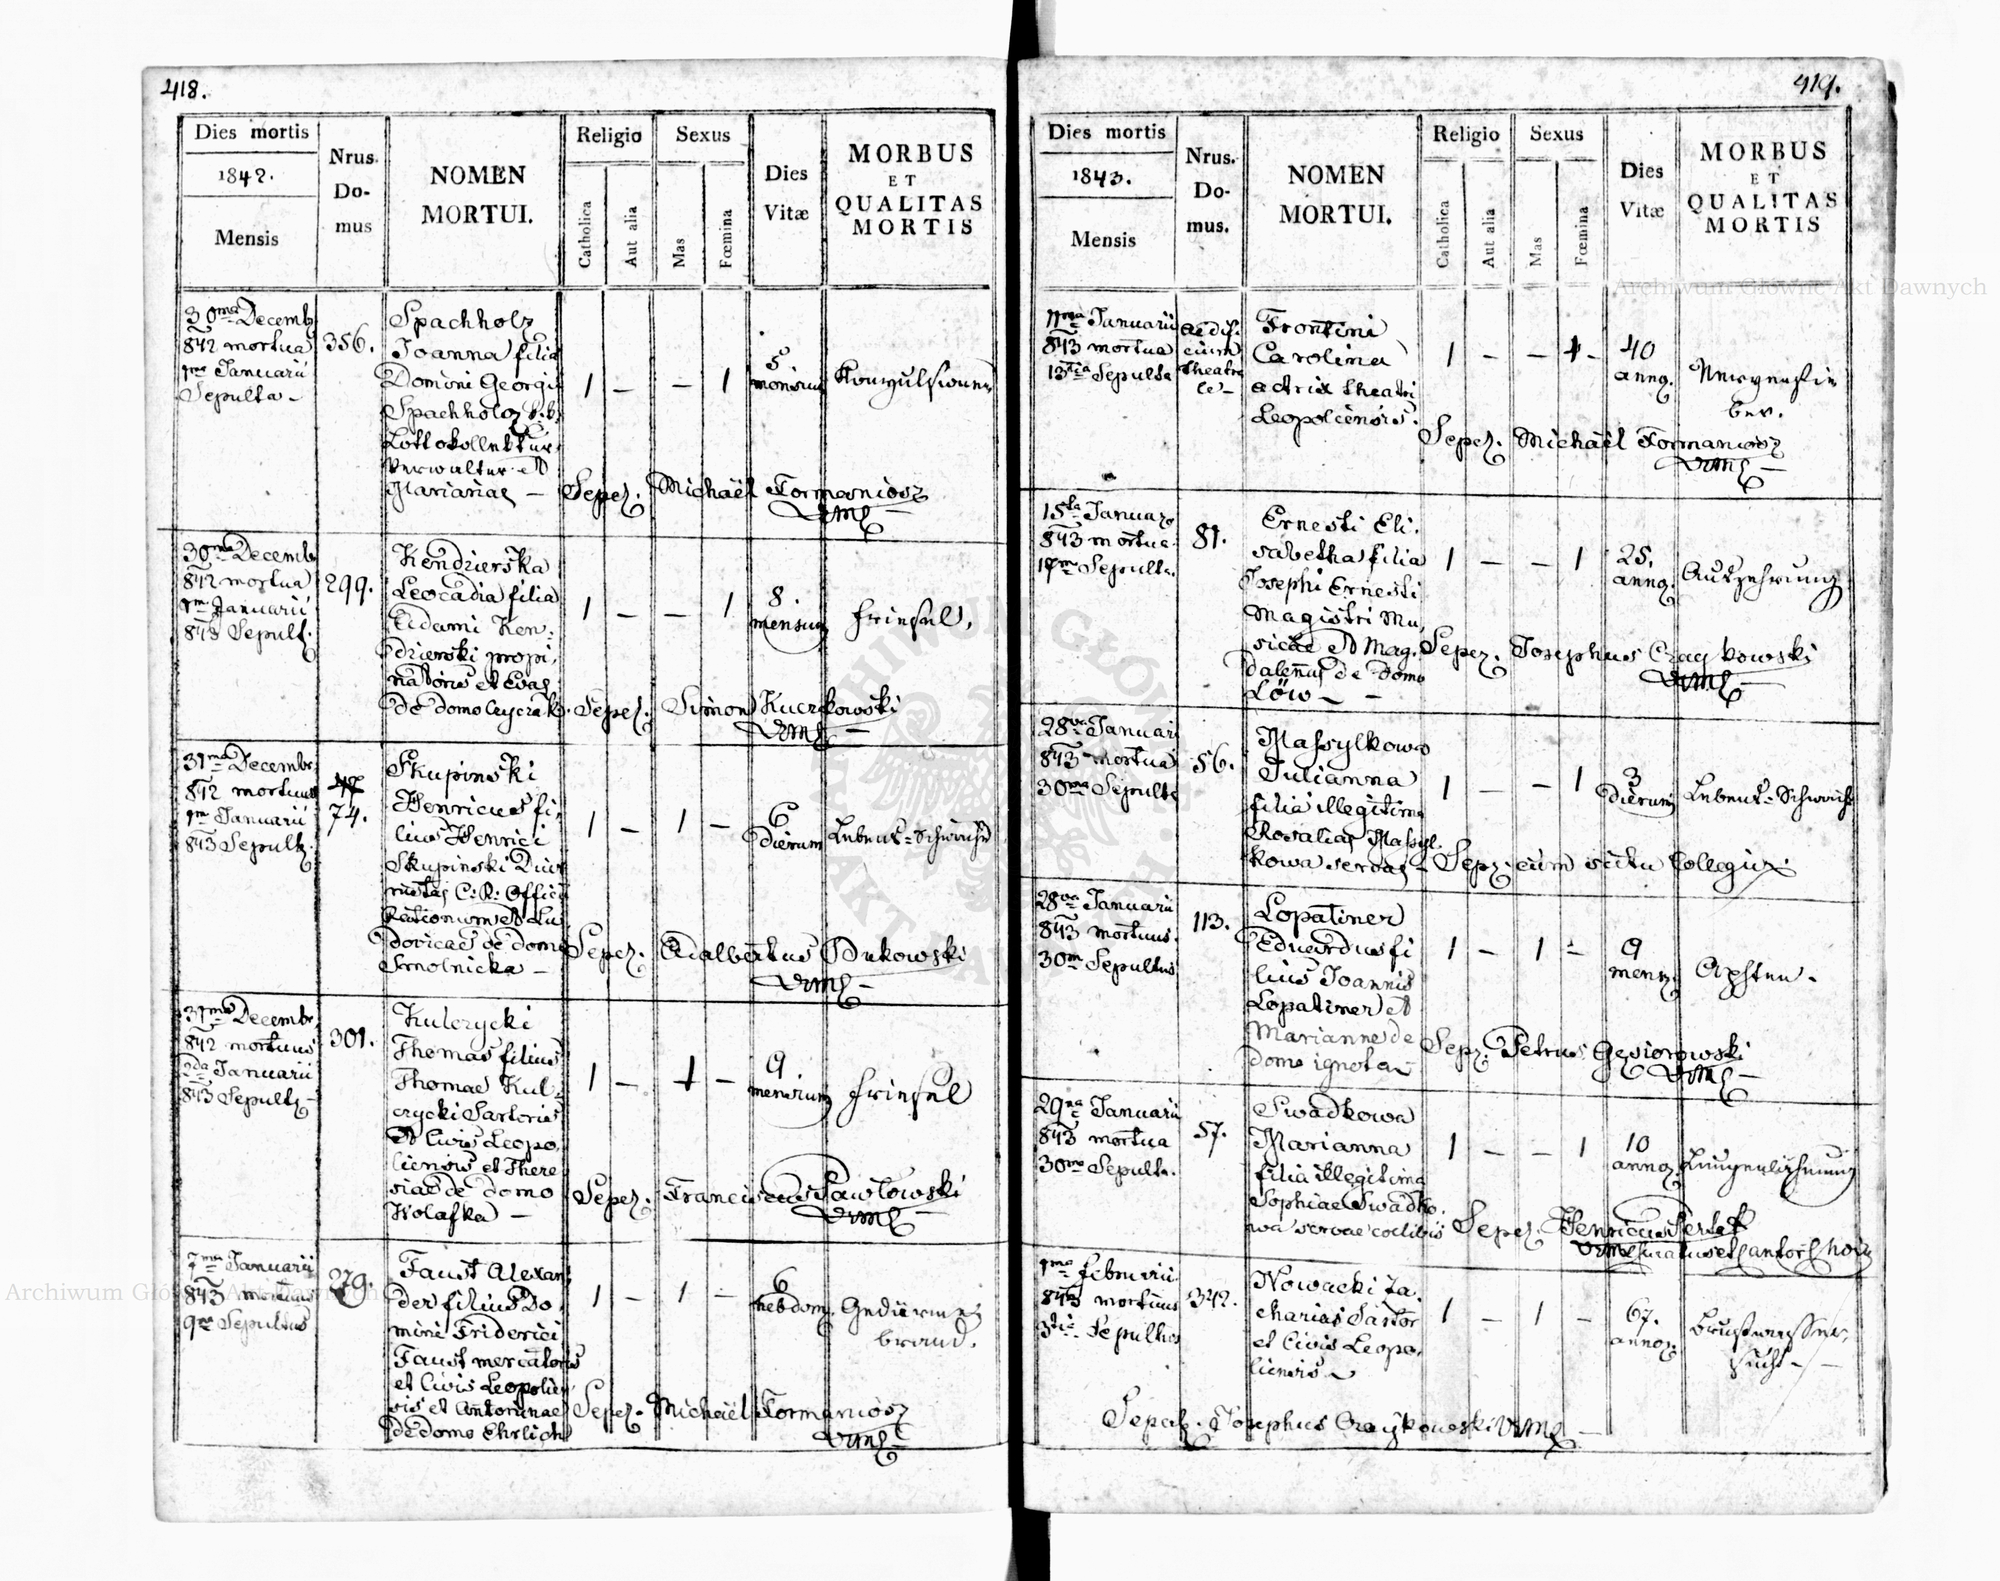 418.
Dies mortis
1842.
Mensis
Nrus.
Do-
mus
NOMEN
MORTUI.
Religio
Catholica
Aut alia
Sexus
Mas
Fœmina
Dies
Vitæ
MORBUS
ET
QUALITAS
MORTIS
30ma Decemb
842 mortua
1ma Januarii
Sepulta -
356.
Spachholz
Joanna filia
Domini Georgii
Spachholz
Lottokollektur
Verwalter et
Mariannae -
1 - - 1
5
mensium
Konvulsionen
Sepel. Michaël Formaniosz
30ma Decemb
842 mortua
1ma Januarii
843 Sepult.
299.
Kendzierska
Leocadia filia
Adami Ken-
dzierski propi-
natoris et Evae
de domo
1 - - 1
8.
mensium
Frieſel.
Sepel. Simon Kuczkowski
31ma Decembr
842 mortuus
1ma Januarii
843 Sepult.
74.
Skupinski
Henricus fi-
lius Henrici
Skupinski Diur
nistae C: R: Offici
Rationum et Lu
dovicae de domo
Smolnicka -
1 - 1 -
6
dierum
Lebens-Schwäche
Sepel. Adalbertus Bukowski
31ma Decembr
842 mortuus
2da Januarii
843 Sepult. -
301.
Kulczycki
Thomas filius
Thomae Kul-
czycki Sartoris
et Civis Leopo-
liensis et There
siae de domo
Wolafka -
1 - 1 -
9
mensium
Frieſel
Sepel. Franciscus Pawlowski
7ma Januarii
843 mortuus
9na Sepultus
279.
Faust Alexan
der filius Do-
mini Friderici
Faust mercatoris
et Civis Leopolien
sis et Antoninae
de domo Ehrlich
1 - 1 -
6
hebdom.
Gedärme-
brand.
Sepel. Michaël Formaniosz
419.
Dies mortis
1843.
Mensis
Nrus.
Do-
mus.
NOMEN
MORTUI.
Religio
Catholica
Aut alia
Sexus
Mas
Fœmina
Dies
Vitæ
MORBUS
ET
QUALITAS
MORTIS
11ma Januarii
843 mortua
13tia Sepulta
aedifi-
cium
theatra
le-
Frontini
Carolina
actrix theatri
Leopoliensis.
1 - - 1 -
40
annor.
Nervenfie
ber.
Sepel. Michaël Formaniosz
15ta Januar
843 mortua
17ma Sepulta.
81.
Ernesti Eli-
sabetha filia
Josephi Ernesti
Magistri Mu-
sicae et Mag-
dalenae de domo
Löw -
1 - - 1
25.
annor.
Auszehrung
Sepel. Josephus Czaykowski
28va Januarii
843 mortua
30ma Sepulta
56.
Maſsylkowa
Julianna
filia illegitima
Rosaliae Maſsyl-
kowa servae -
1 - 1
3
dierum
Lebens-Schwäche
Sepel. cum scitu Collegii
28va Januarii
843 mortuus.
30ma Sepultus
113.
Lopatiner
Eduardus fi
lius Joannis
Lopatiner et
Mariannae de
domo ignota -
1 - 1 -
9
mens.
Aphten -
Sepel. Petrus Gęsiorowski
29na Januarii
843 mortua
30ma Sepulta.
57.
Swadkowa
Marianna
filia illegitima
Sophiae Swadko-
wa servae coelibis
1 - - 1
10
annor.
Lungenlähmung
Sepel. Henricus Perlak
1ma Februarii
843 mortuus
3tia Sepultus
342.
Nowacki Za-
charias Sartor
et Civis Leopo-
liensis -
1 - 1 -
67.
annor.
Bruſtwaſſer-
ſucht -
Sepel. Josephus Czaykowski
Archiwum Główne Akt Dawnych
Archiwum Główne Akt Dawnych
ARCHIWUM GŁÓWNE AKT DAWNYCH